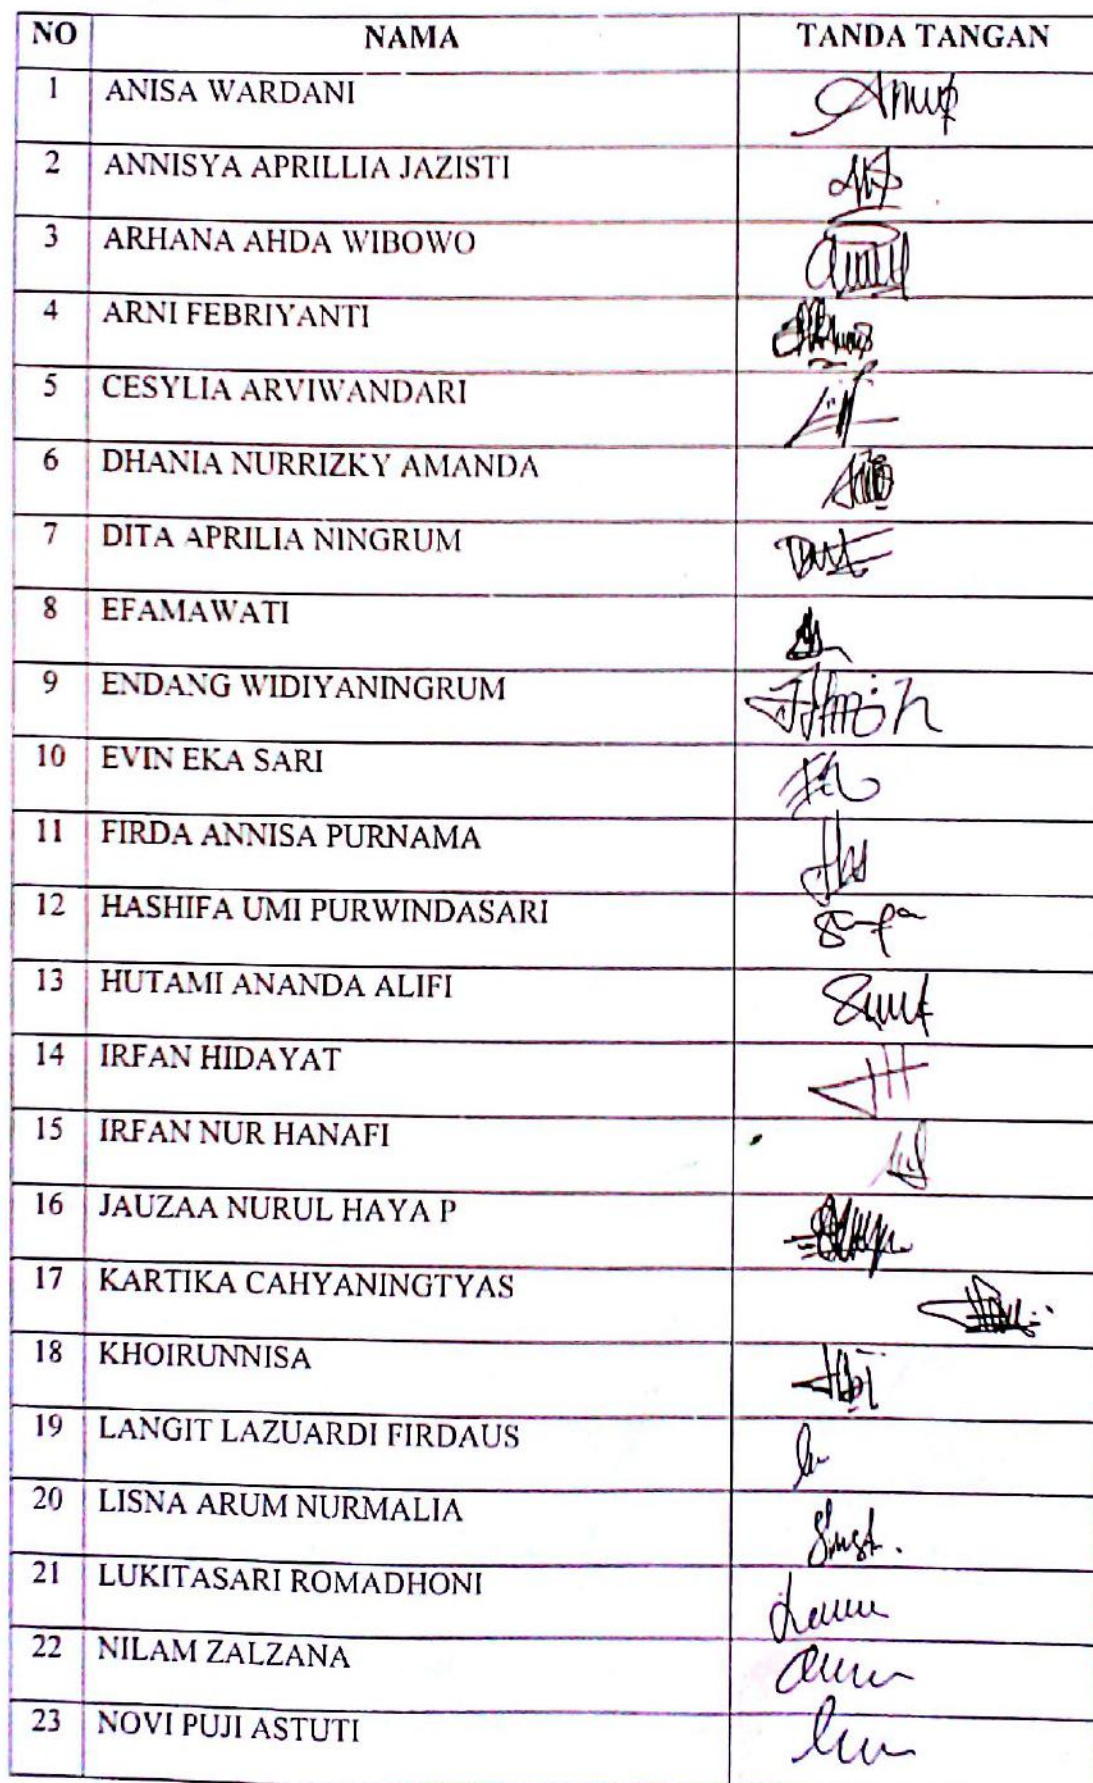 NO NAMA TANDA TANGAN
1 ANISA WARDANI
2 ANNISYA APRILLIA JAZISTI
3 ARHANA AHDA WIBOWO
4 ARNI FEBRIYANTI
5 CESYLIA ARVIWANDARI
6 DHANIA NURRIZKY AMANDA
7 DITA APRILIA NINGRUM
8 EFAMAWATI
9 ENDANG WIDIYANINGRUM
10 EVIN EKA SARI
11 FIRDA ANNISA PURNAMA
12 HASHIFA UMI PURWINDASARI
13 HUTAMI ANANDA ALIFI
14 IRFAN HIDAYAT
15 IRFAN NUR HANAFI
16 JAUZAA NURUL HAYA P
17 KARTIKA CAHYANINGTYAS
18 KHOIRUNNISA
19 LANGIT LAZUARDI FIRDAUS
20 LISNA ARUM NURMALIA
21 LUKITASARI ROMADHONI
22 NILAM ZALZANA
23 NOVI PUJI ASTUTI